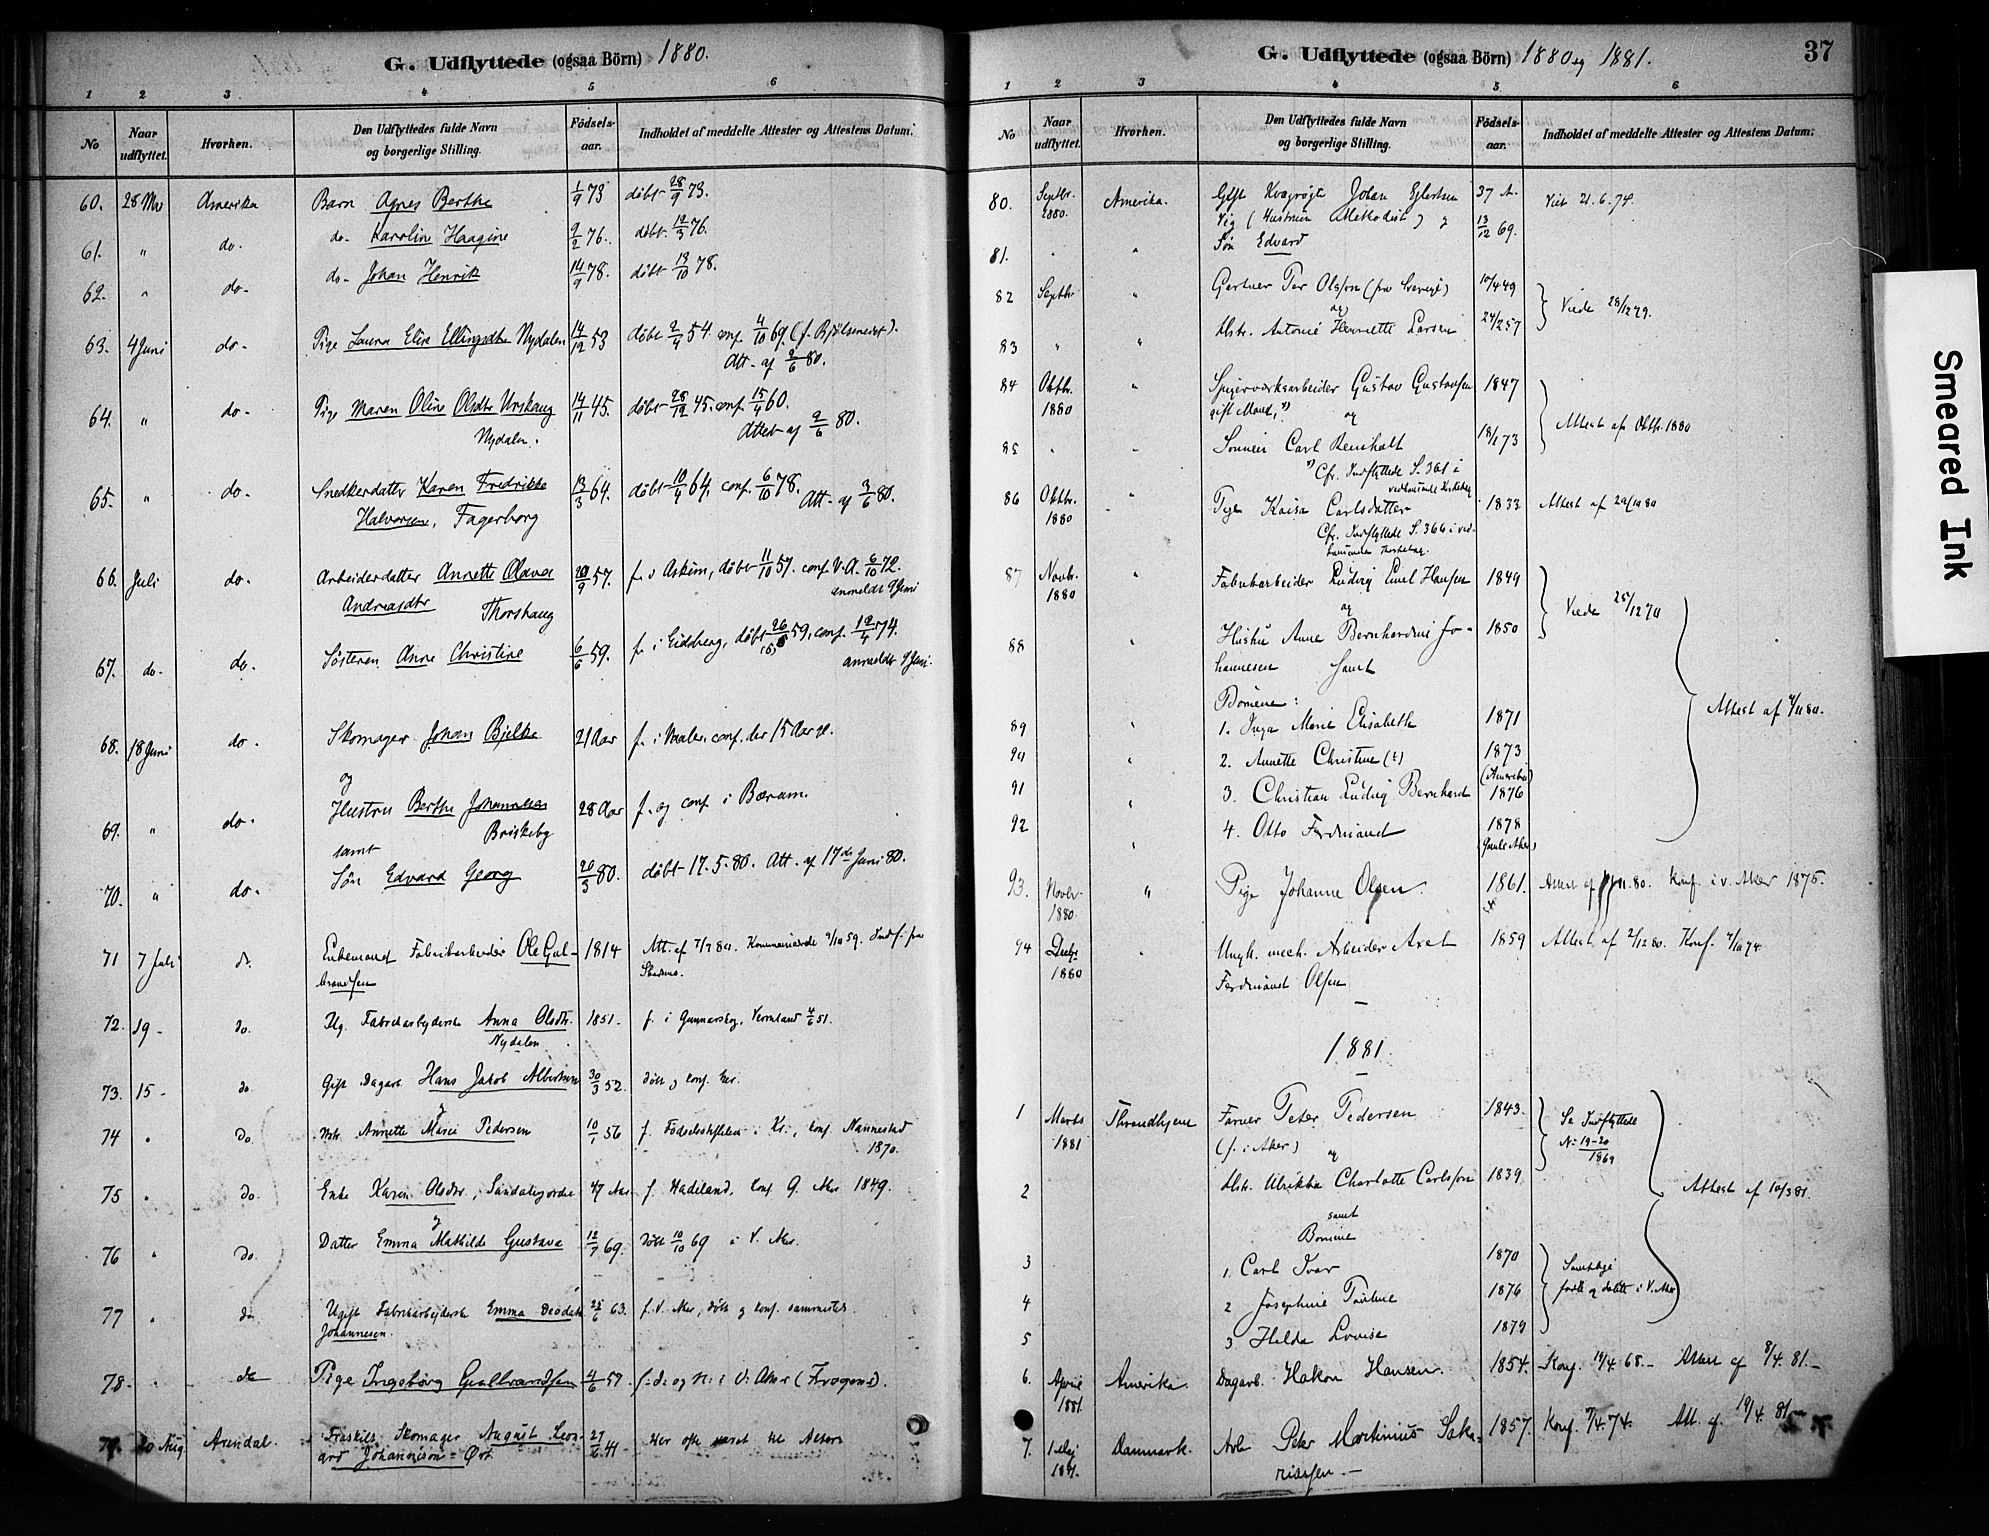 G. Udflyttede (ogsaa Börn) 1880.
1 2 3 4 5 6
No
Naar udflyttet.
Hvorhen.
Den Udflyttedes fulde Navn og borgerlige Stilling.
Födsels-aar.
Indholdet af meddelte Attester og Attestens Datum.
60. 28 Mai Amerika Barn Agnes Berthe 1/9 73 döbt 28/9 73.
61. " do. do. Karoline Haagine 9/2 76. döbt 12/3 76.
62. " do. do. Johan Henrik 14/9 78. döbt 13/10 78.
63. 4 Juni do. Pige Laura Elise Ellingsdtr Nydalen 14/12 53 döbt 2/4 54. conf. 4/10 69 (f. Bjölsenedet).
Att. af 2/6 80.
64. " do. Pige Maren Oline Olsdtr Urskaug 14/11 45. döbt 28/12 45. conf. 15/4 60.
Nydalen. Attest af 2/6 80.
65. " do. Snedkerdatter Karen Fredrikke 13/3 64. döbt 10/4 64, conf. 6/10 78.
Halvorsen, Fagerborg Att. af 3/6 80.
66. Juli do. Arbeiderdatter Annette Olava 20/9 57. f. i Askim, döbt 11/10 57. conf. V. A. 6/10 72.
Andreasdtr Thorshaug anmeldt 9 Juni
67. do. do. Sösteren Anne Christine 6/6 59. f. i Eidsberg, döbt 26/ 59, conf. 12/4 74.
anmeldt 9 Juni.
68. 18 Juni do. Skomager Johan Bjelke 21 Aar f. i conf. her 15 Aar gl.
og
69. " do. Hustru Berthe Johannesen 28 Aar f. og conf. i Bærum.
Briskeby
samt
70. " do. Sön Edvard Georg 20/3 80. döbt 17.5.80. Att. af 17de Juni 80.
71 7 Juli do. Enkemand Fabrikarbeider Ole Gul- 1814 Att. af 7/7 80. 59. Indf. fra
brandsen
72. 19 - do. Ug. Fabrikarbeiderske Anna Olsdtr. 1851. f. i Gunnarskog, Vermland 4/6 51.
Nydalen
73. 15 - do Gift Dagarb. Hans Jakob Albertsen 30/3 52. döbt og conf. her.
og
74 " do Hstr. Annette Marie Pedersen 10/1 56 f. Födselsstiftelsen i Kr., conf. Nannestad
1870.
75 " do. Enke Karen Olsdtr., 47 Aar f. Hadeland, conf. Ø. Aker 1849.
og
76 " do. Datter Emma Mathilde Gustava 12/7 69. döbt 10/10 69 i V. Aker.
77 " do Ugift Fabrikarbeiderske Emma 25/6 63. f. V. Aker, döbt og conf. sammesteds
Johannesen.
78. " do Pige Ingeborg Gulbrandsen 4/6 57. f. d. og k. i V. Aker (Frogner).
79. 20 Aug Arendal. Fraskilt Skomager August Leon- 27/6 44 Her ofte været til Alters
ard Johannison - Ört.
G. Udflyttede (ogsaa Börn) 1880 og 1881.
37
1 2 3 4 5 6
No
Naar udflyttet.
Hvorhen.
Den Udflyttedes fulde Navn og borgerlige Stilling.
Födsels-aar.
Indholdet af meddelte Attester og Attestens Datum.
80. Septbr. 1880. Amerika. Gift Kvægrögter Johan Eilertsen 37 A. Viet 21.6.74.
Vig (Hustruen Methodist) og
81. " " Sön Edvard 13/12 69.
82 Septbr " Gartner Per Olsson (fra Sverige) 10/4 49
og
83 " " Hstr. Antonie Henriette Larsen 24/2 57 Viede 28/12 79.
84 Oktbr. 1880 " Spigerværksarbeider Gustav Gustavsen 1847
gift Mand, *) og
85 " " Sönnen Carl Reinholt 18/1 73 Attest af Oktbr. 1880
*) Cfr. Indflyttede S. 361 i
vedkommende Kirkebog
86 Oktbr. 1880 " Pige Kaisa Carlsdatter 1833 Attest af 29/10 80
Cfr. Indflyttede S. 366 i ved-
kommende Kirkebog.
87 Novbr. 1880 " Fabrikarbeider Ludvig Emil Hansen 1849 Viede 25/12 70
og
88 " Hustru Anne Bernhardine Jo- 1850
hannesen samt
Börnene:
89 " 1. Inga Marie Elisabeth 1871 Attest af 4/11 80.
90 " 2. Annette Christine (t) 1873
(Amerika)
91 " 3. Christian Ludvig Bernhard 1876
92 " 4. Otto Ferdinand 1878
(Gamle Aker)
93. Novbr 1880. " Pige Johanne Olsen. 1861. Attest af 11.80. Konf. i V. Aker 1875.
94 Decbr 1880 " Ungk. mech. Arbeider Axel 1859 Attest af 2/12 80. Konf. 4/10 74
Ferdinand Olsen
1881.
1 Marts 1881 Throndhjem Farver Peter Pedersen 1843. Se Indflyttede
(f. i Aker) og No 19-20
1869
2 Hstr. Ulrikke Charlotte Carlsson 1839 Attest af 10/3 81.
samt
Börnene
3 1. Carl Ivar 1870 Samtlige
4 2 Josephine Pauline 1876 födt og döbte i V. Aker
5 3 Hilda Lovise 1879
6. April 1881. Amerika. Dagarb. Hakon Hansen. 1854. Konf. 19/4. 68. - Attest af 8/4. 81. -
7. 1 Maj 1881. Danmark. Arb. Peter Martinius Saka- 1857. Konf. 9/4. 74. Att. af 19/4. 81 -
riassen. -
Smeared Ink